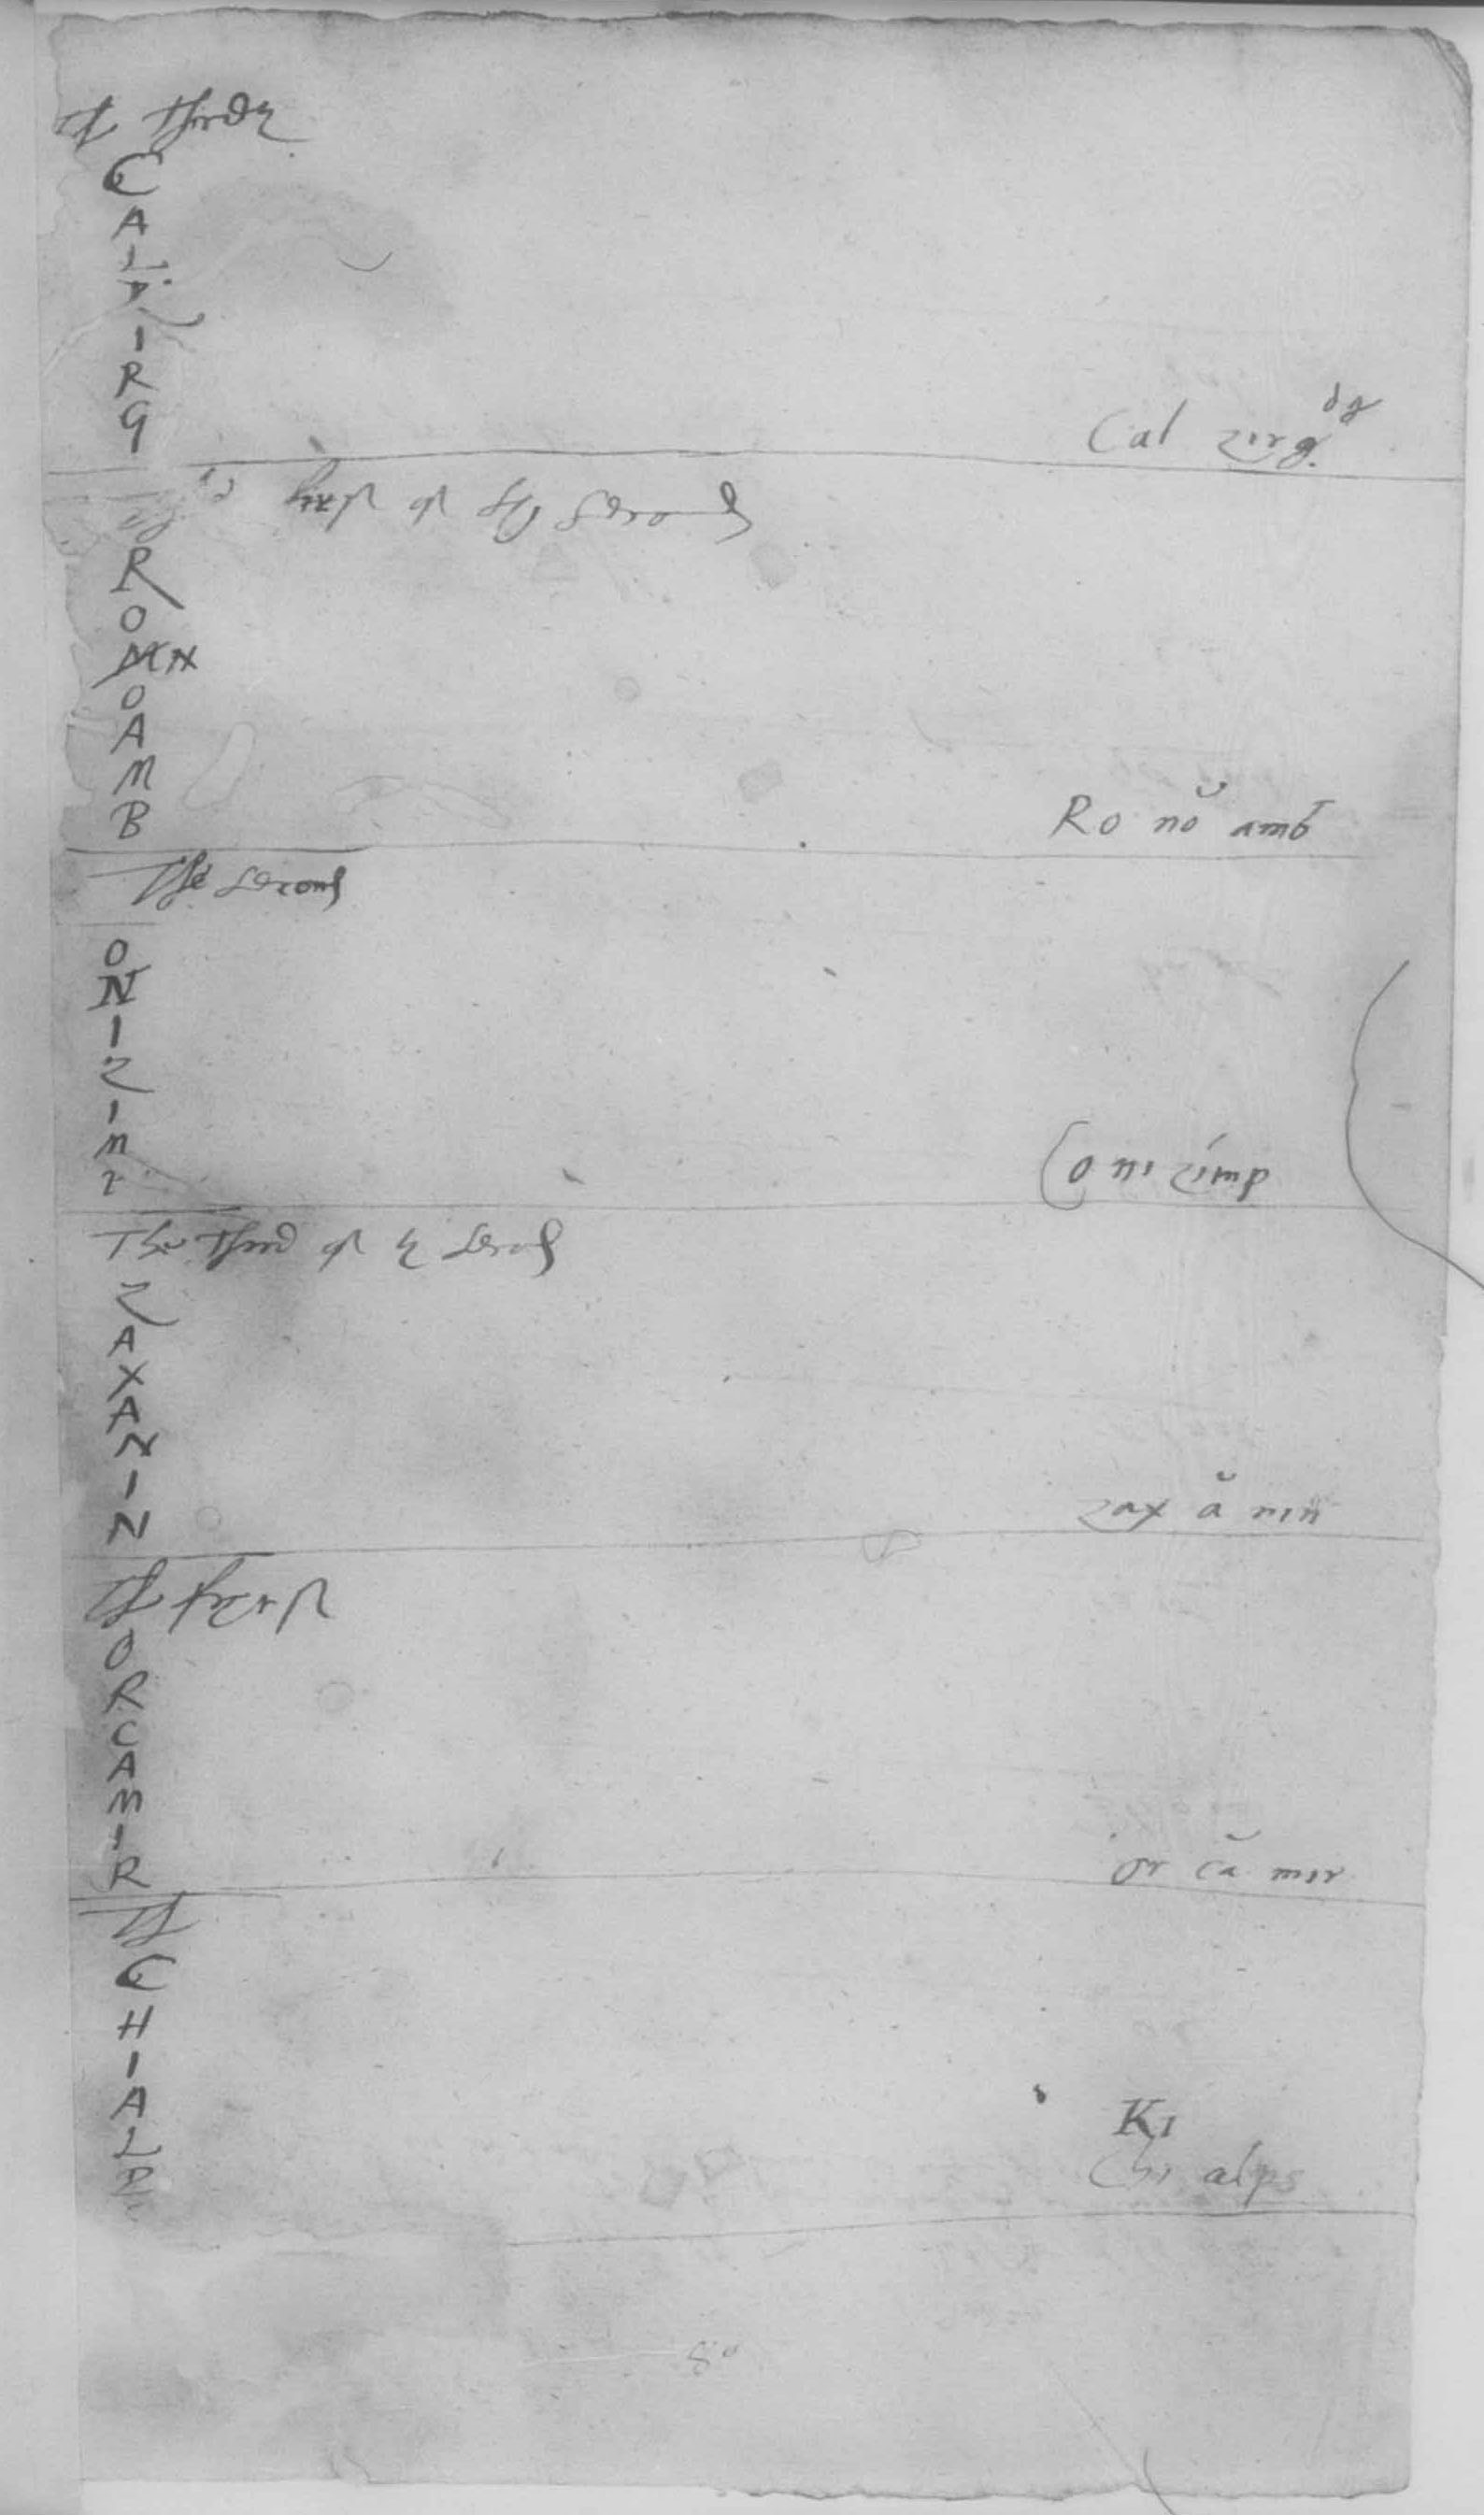 The Third
C
A
L
Z
I
R
G
dg
Cal zirg.
first of the second
R
O
M N
O
A
M
B
Ro nŏ amb
The second
O
N
I
Z
I
M
P
(o ni zímp
The Third of ye second
Z
A
X
A
N
I
N
zax ă nin
The fyrst
O
R
C
A
M
I
R
or că mir
The
C
H
I
A
L
P
Ki
Chi alps